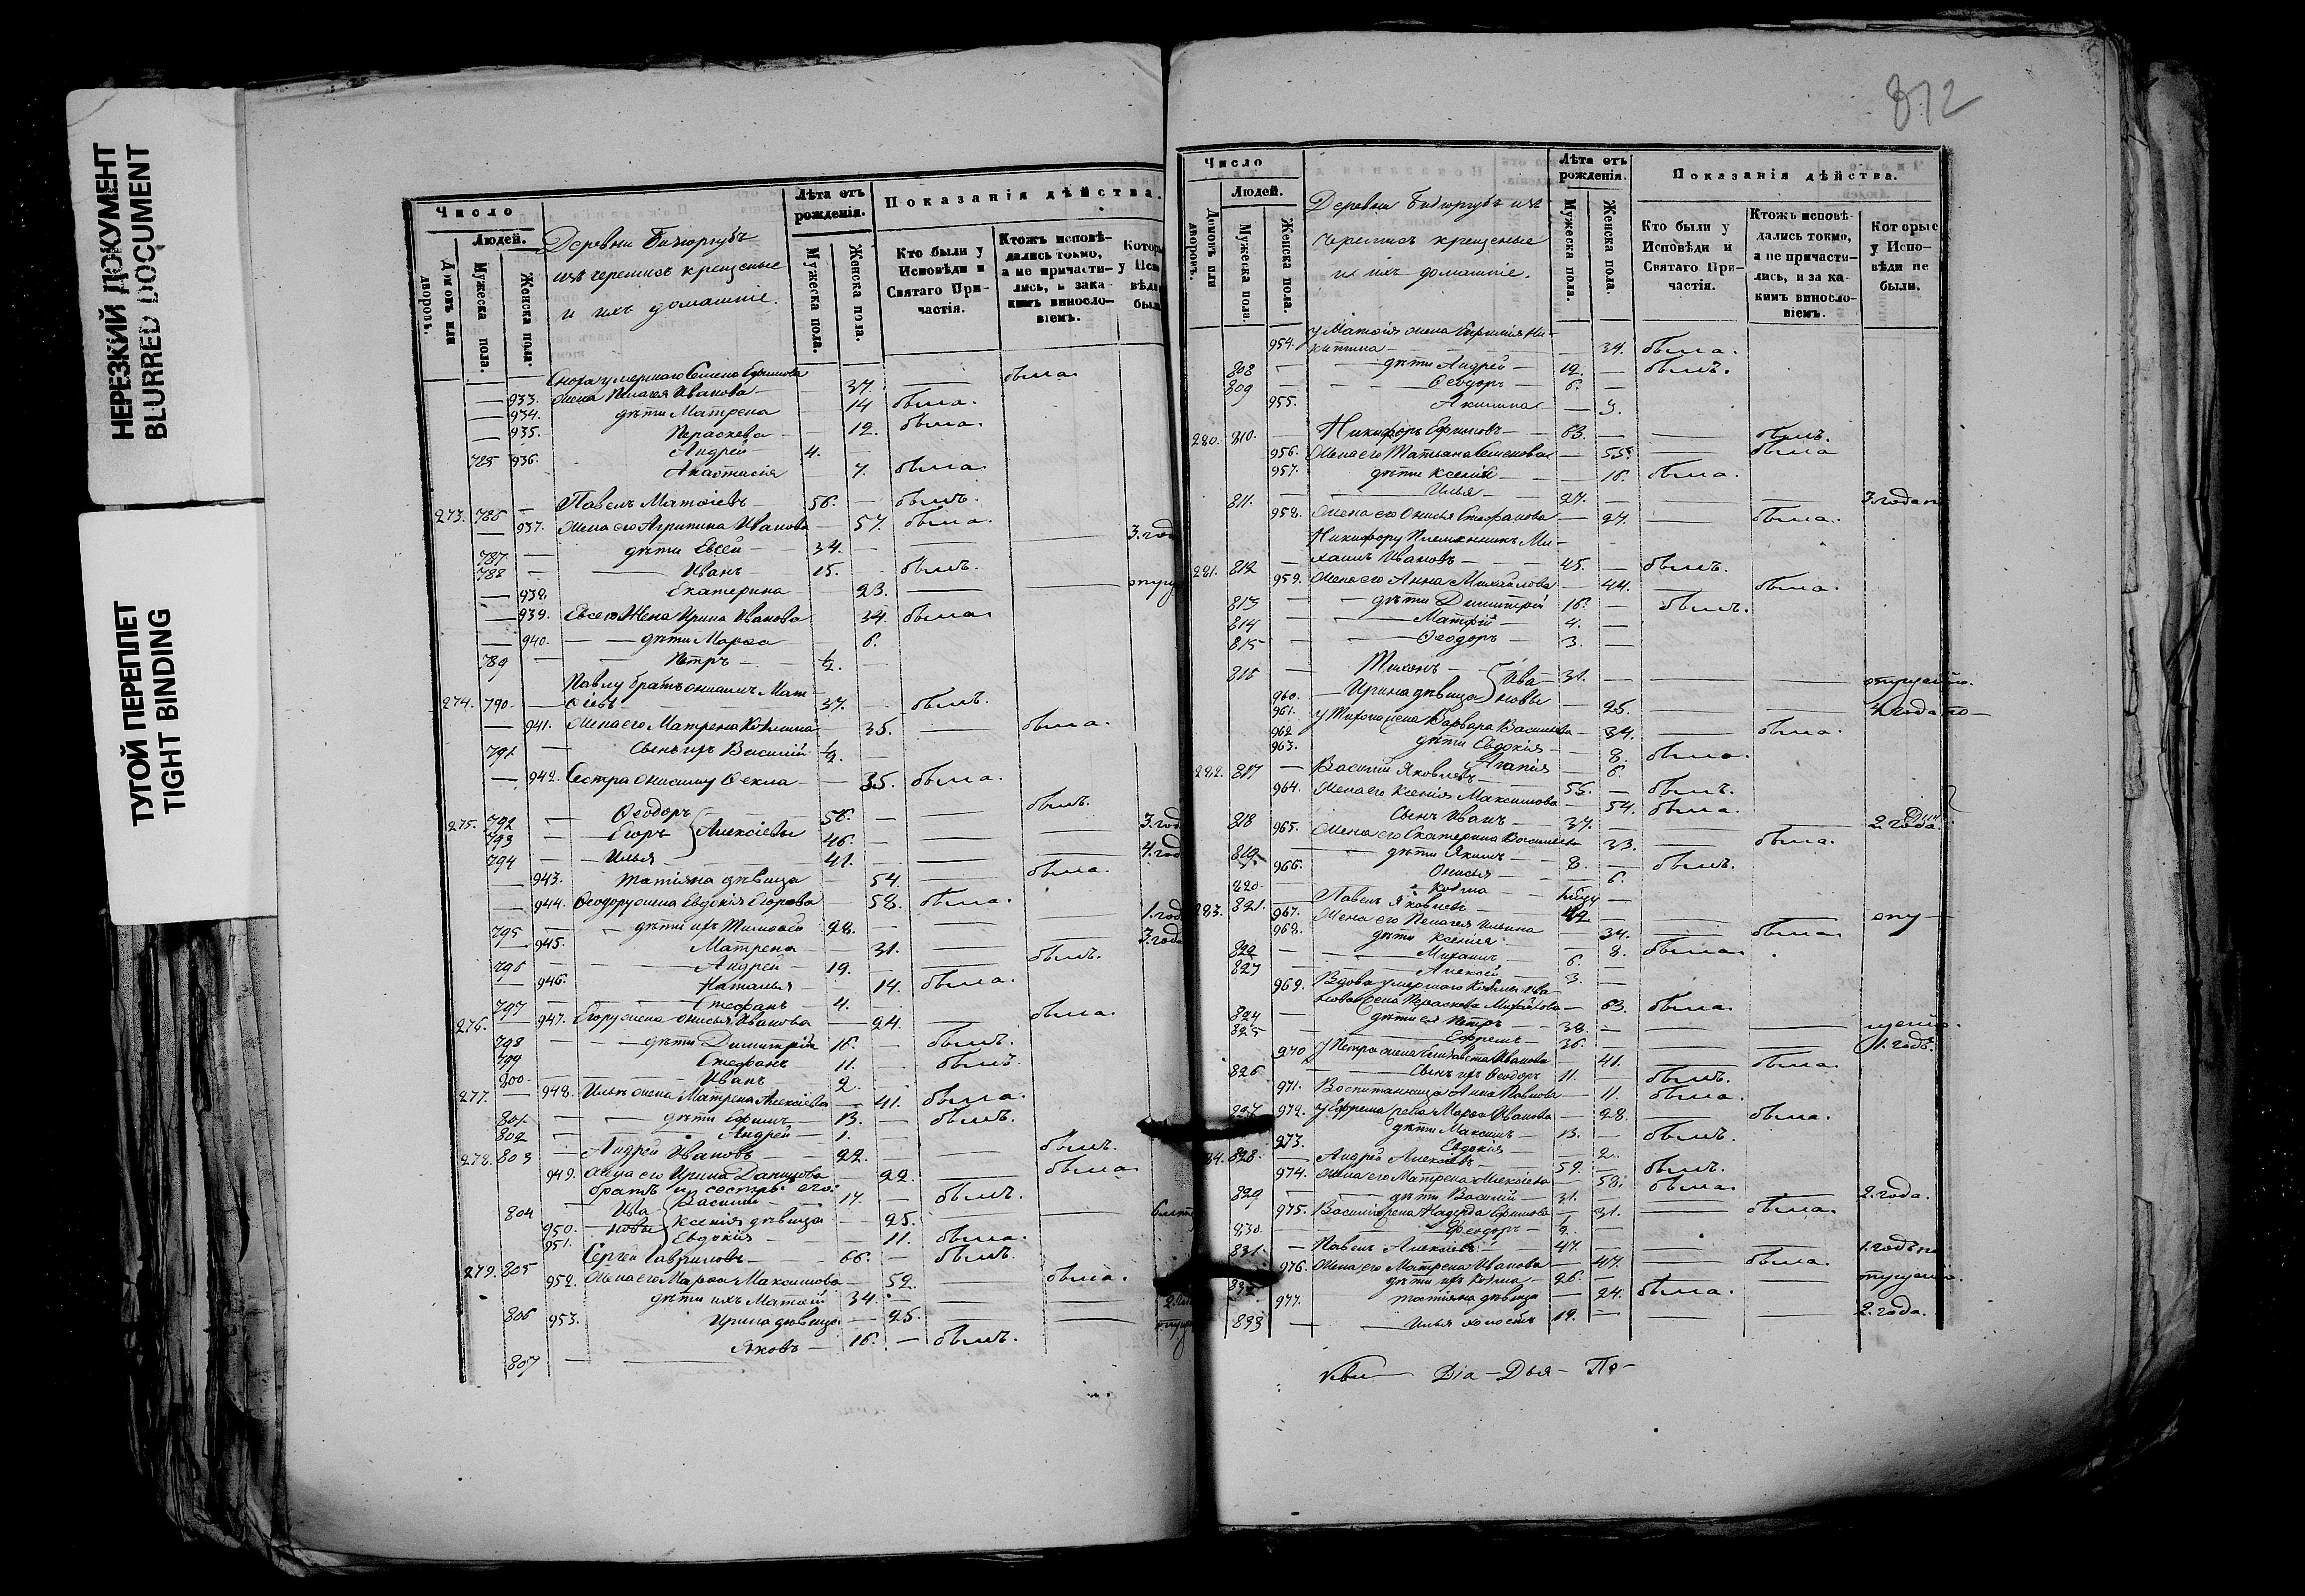 НЕРЕЗКИЙ ДОКУМЕНТ
BLURRED DOCUMENT
ТУГОЙ ПЕРЕПЛЕТ
TIGHT BINDING
Число
Людей.
Домовъ или дворовъ.
Мужеска пола.
Женска пола.
Деревни
изъ черемисъ крещеные
и ихъ домашніе.
Лѣта отъ рожденія.
Мужеска пола.
Женска пола.
Показанія дѣйства.
Кто были у Исповѣди и Святаго Причастія.
Ктожъ исповѣдались токмо, а не причастились, и за какимъ винословіемъ.
Сноха умершаго Семена Ефимова
933. жена Пелагея Иванова 37. была
934. дѣти Матрена 14 была.
935. Параскева 12. была.
785 Андрей 4.
936. Анастасія 7. была
273. 786 Павелъ Матѳіевъ 56. былъ.
937. Жена его Агрипина Иванова 57. была.
787 дѣти Евсей 34. 3. год
788 Иванъ 15. былъ.
938. Екатерина 23.
939. Евсею Жена Ирина Иванова 34. была
940. дѣти Марѳа 6.
789 Петръ ½.
Павлу братъ Онисимъ Мат-
274. 790. ѳіевъ 37. былъ.
941. Жена его Матрена Козмина 35. была.
791 Сынъ ихъ Василій ½.
942. Сестра Онисиму Ѳекла 35. была.
275. 792 Ѳеодоръ 56. былъ.
793 Егоръ Алексѣевы 46. 3. год
794 Илья 41. 4. год
943. Татіяна дѣвица 54. была.
944. Ѳеодору жена Евдокія Егорова 58. была.
795 дѣти ихъ Тимоѳей 28. 1. год
945. Матрена 31. 3. года
796 Андрей 19. былъ.
946. Наталья 14. была.
797 Стефанъ 4.
276. 947. Егору жена Онисья Иванова 24. была.
798 дѣти Димитрій 16. былъ.
799 Стефанъ 11. былъ.
800. Иванъ 2.
277. 948. Ильѣ жена Матрена Алексѣева 41. была.
801. дѣти Ефимъ 13. былъ.
802 Андрей 1.
278. 803 Андрей Ивановъ 22. былъ.
949. Жена его Ирина Данилова 22. была
братъ и сестры его:
804 Ива- Василій 17. былъ.
950. новы Ксенія дѣвица 25.
951. Евдокія 11. была.
279. 805 Сергей Гавриловъ 66. былъ.
952. Жена его Марѳа Максимова 52. была.
806 дѣти ихъ Матѳій 34.
953. Ирина дѣвица 25.
807 Яковъ 16. былъ.
812
Число
Людей.
Домовъ или дворовъ.
Мужеска пола.
Женска пола.
Деревни изъ
черемисъ крещеные
и ихъ домашніе.
Лѣта отъ рожденія.
Мужеска пола.
Женска пола.
Показанія дѣйства.
Кто были у Исповѣди и Святаго Причастія.
Ктожъ исповѣдались токмо, а не причастились, и за какимъ винословіемъ.
Которые у Исповѣди не были.
954. у Матѳія жена Евфимія Ни-
китина 34. была.
808 дѣти Андрей 12. былъ.
809 Ѳеодоръ 6.
955. Акилина 3.
280. 810. Никифоръ Ефимовъ 63. былъ.
956. Жена его Татьяна Семенова 55. была
957. дѣти Ксенія 16. была.
811. Илья 27. 3. года
958. Жена его Онисья Стефанова 24. была.
Никифору племянникъ Ми-
281. 812 хаилъ Ивановъ 45. былъ.
959. Жена его Анна Михайлова 44. была.
813 дѣти Димитрій 16. былъ.
814 Матѳій 4.
815 Ѳеодоръ 3.
816 Тихонъ Ива- 31.
960. Ирина дѣвица новы 25. 4. года
961. у Тихона жена Варвара Василіева 34. была.
962 дѣти Евдокія 8. была.
963. Агапія 6.
282. 817 Василій Яковлевъ 55. былъ.
964. Жена его Ксенія Максимова 54. была.
818 Сынъ Иванъ 37. 2. года
965. Жена его Екатерина Василіева 33. была.
819 дѣти Якимъ 8. былъ.
966. Онисья 6.
820. Козма
283. 821. Павелъ Яковлевъ 42.
967. Жена его Пелагея Ильина 34. была
968. дѣти Ксенія 8. была
822 Михаилъ 6.
823 Алексѣй 3.
Вдова умершаго Козмы Ива-
969. нова жена Параскева Михайлова 63. была.
824 дѣти ея Петръ 38.
825 Ефремъ 36. 1. годъ.
970 у Петра жена Елисавета Иванова 41. была.
826 Сынъ ихъ Ѳеодоръ 11. былъ.
971. Воспитанница Анна Павлова 11. была.
972. у Ефрема жена Марѳа Иванова 28. была.
827 дѣти Максимъ 13. былъ.
973. Евдокія 2.
284. 828. Андрей Алексѣевъ 59. былъ.
974. Жена его Матрена Алексѣева 58. была.
829 дѣти Василій 31. 2. года.
975. Василію жена Надежда Ефимова 31. была.
830. Ѳеодоръ ½.
831. Павелъ Алексѣевъ 47. 1. годъ
976. Жена его Матрена Иванова 47. была.
832 дѣти ихъ Козма 26.
977. Татіяна дѣвица 24. была.
833 Илья холостъ 19. 2. года.
Діа- Дья-